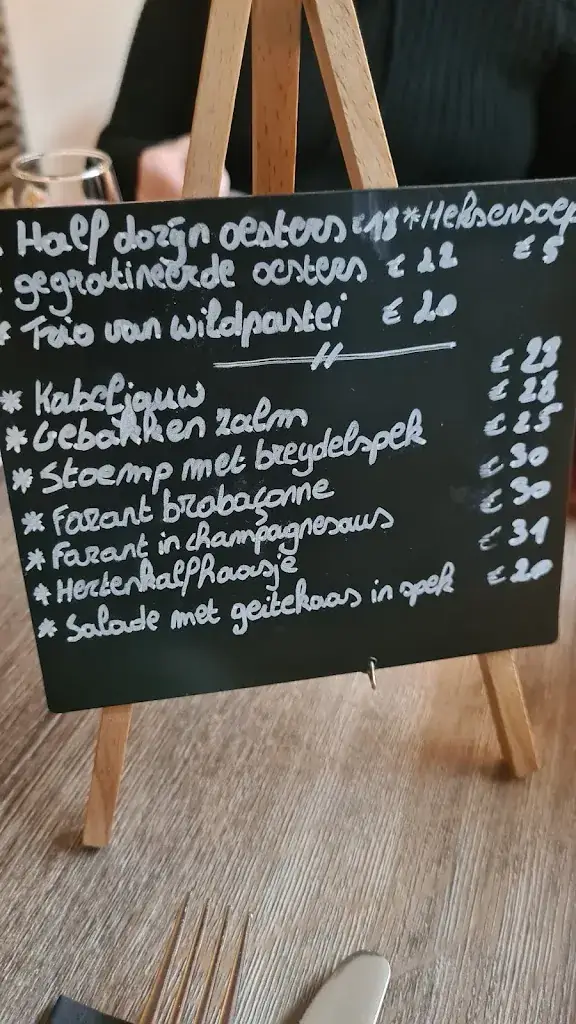 * Half dozijn oesters €18 *Heksensoep
* gegratineerde oesters € 22 € 5
* Trio van wildpastei € 20
* Kabeljauw € 29
* Gebakken zalm € 28
* Stoemp met breydelspek € 25
* Fazant brabaçonne € 30
* Fazant in champagnesaus € 30
* Hertenkalfhaasje € 31
* Salade met geitekaas in spek € 20